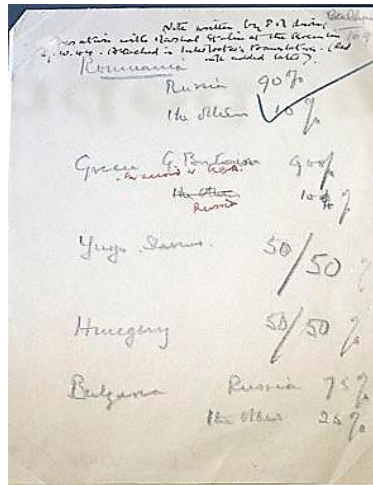 Note written by P.M. during
conversation with Marshal Stalin at the Kremlin
Attached is Interpreter's translation. (Red
ink added later).
Roumania
Russia 90%
the others 10%
Greece G. Britain 90%
in accord w USA.
the others 10%
Russia
Yugo Slavia. 50/50 %
Hungary 50/50 %
Bulgaria Russia 75%
the others 25%